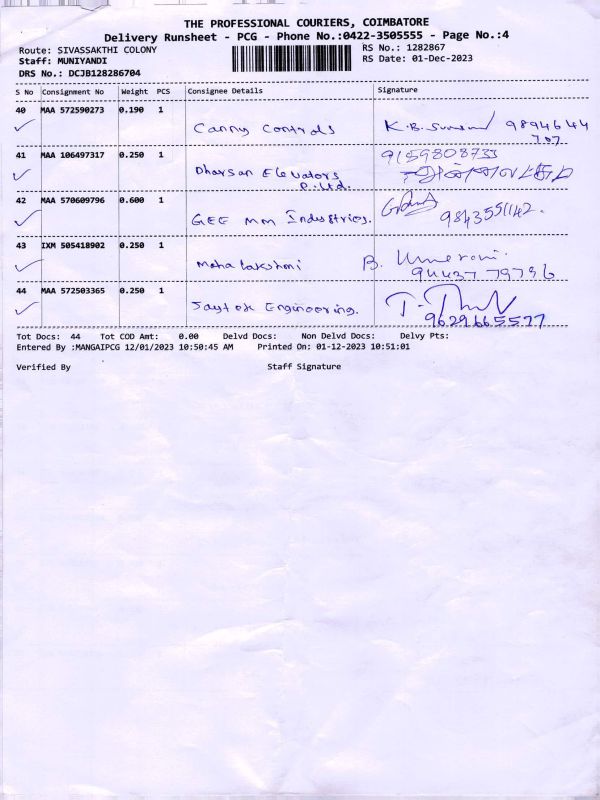 THE PROFESSIONAL COURIERS, COIMBATORE
Delivery Runsheet - PCG - Phone No.:0422-3505555 - Page No.:4
Route: SIVASSAKTHI COLONY RS No.: 1282867
Staff: MUNIYANDI RS Date: 01-Dec-2023
DRS No.: DCJB128286704
S No Consignment No Weight PCS Consignee Details Signature
40 MAA 572590273 0.190 1
Canny Controls K.B. 9894644
707
41 MAA 106497317 0.250 1 9159808733
Dharsan Elevators
P. Ltd.
42 MAA 570609796 0.600 1
GEE MM Industries. 9843551142.
43 IXM 505418902 0.250 1
Mahalakshmi B.
94437 79796
44 MAA 572503365 0.250 1
Jaytek Engineering. T.
9629665577
Tot Docs: 44 Tot COD Amt: 0.00 Delvd Docs: Non Delvd Docs: Delvy Pts:
Entered By :MANGAIPCG 12/01/2023 10:50:45 AM Printed On: 01-12-2023 10:51:01
Verified By Staff Signature